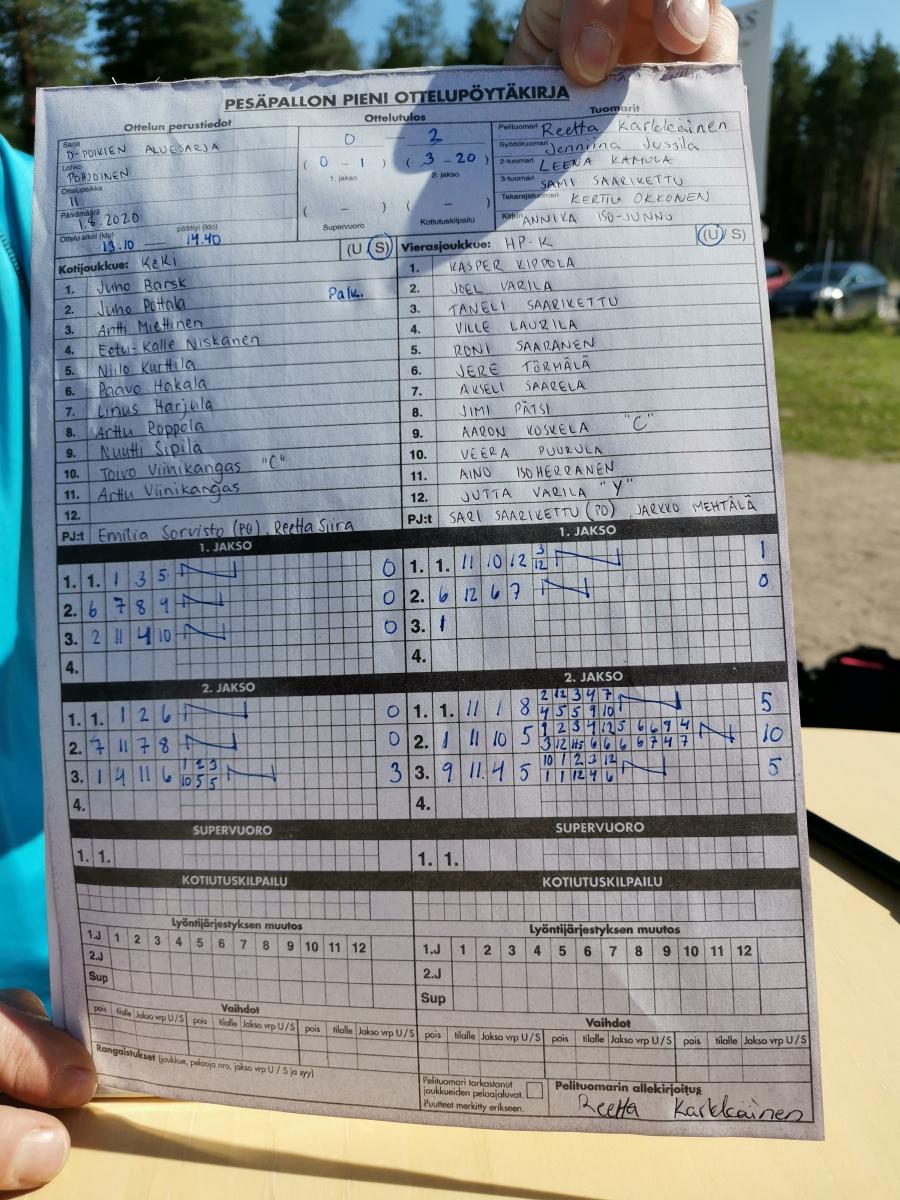 PESÄPALLON PIENI OTTELUPÖYTÄKIRJA
Ottelun perustiedot
Sarja
D-POIKIEN ALUESARJA
Lohko
POHJOINEN
Ottelupaikka
II
Päivämäärä
1.8.2020
Ottelu alkoi (klo) päättyi (klo)
13.10 — 14.40
Ottelutulos
0 - 2
( 0 - 1 ) ( 3 - 20 )
1. jakso 2. jakso
( - ) ( - )
Supervuoro Kotiutuskilpailu
Tuomarit
Pelituomari Reetta Karkkainen
Syöttötuomari Jenniina Jussila
2-tuomari LEENA KAMULA
3-tuomari SAMI SAARIKETTU
Takarajatuomari KERTTU OKKONEN
Kirjuri ANNIKA ISO-JUNNO
Kotijoukkue: KeKi (U S)
1. Juho Barsk
2. Juho Pottala Palk.
3. Antti Miettinen
4. Eetu-Kalle Niskanen
5. Niilo Kurttila
6. Paavo Hakala
7. Linus Harjula
8. Arttu Roppola
9. Nuutti Sipilä
10. Toivo Viinikangas "C"
11. Arttu Viinikangas
12.
PJ:t Emilia Sorvisto (PQ), Reetta Siira
Vierasjoukkue: HP-K (U S)
1. KASPER KIPPOLA
2. JOEL VARILA
3. TANELI SAARIKETTU
4. VILLE LAURILA
5. RONI SAARANEN
6. JERE TÖRMÄLÄ
7. AKSELI SAARELA
8. JIMI PÄTSI
9. AARON KOSKELA "C"
10. VEERA PUURULA
11. AINO ISOHERRANEN
12. JUTTA VARILA "Y"
PJ:t SARI SAARIKETTU (PD), JARKKO MEHTÄLÄ
1. JAKSO
1. 1. 1 3 5 0
2. 6 7 8 9 0
3. 2 11 4 10 0
4.
1. JAKSO
1. 1. 11 10 12 3 12 1
2. 6 12 6 7 0
3. 1
4.
2. JAKSO
1. 1. 1 2 6 0
2. 7 11 7 8 0
3. 1 4 11 6 1 2 3 3
10 5 5
4.
2. JAKSO
1. 1. 11 1 8 2 12 3 4 7 5
4 5 5 9 10
2. 1 11 10 5 1 2 3 4 12 5 6 6 9 4 10
3 12 6 6 6 6 7 4 7
3. 9 11. 4 5 10 1 2 3 12 5
1 1 12 4 6
4.
SUPERVUORO
1. 1.
SUPERVUORO
1. 1.
KOTIUTUSKILPAILU
KOTIUTUSKILPAILU
Lyöntijärjestyksen muutos
1.J 1 2 3 4 5 6 7 8 9 10 11 12
2.J
Sup
Lyöntijärjestyksen muutos
1.J 1 2 3 4 5 6 7 8 9 10 11 12
2.J
Sup
Vaihdot
pois tilalle Jakso vrp U/S pois tilalle Jakso vrp U/S pois tilalle Jakso vrp U/S
Vaihdot
pois tilalle Jakso vrp U/S pois tilalle Jakso vrp U/S pois tilalle Jakso vrp U/S
Rangaistukset (joukkue, pelaaja nro, jakso vrp U / S ja syy)
Pelituomari tarkastanut
joukkueiden pelaajaluvat.
Puutteet merkitty erikseen.
Pelituomarin allekirjoitus
Reetta Karkkainen